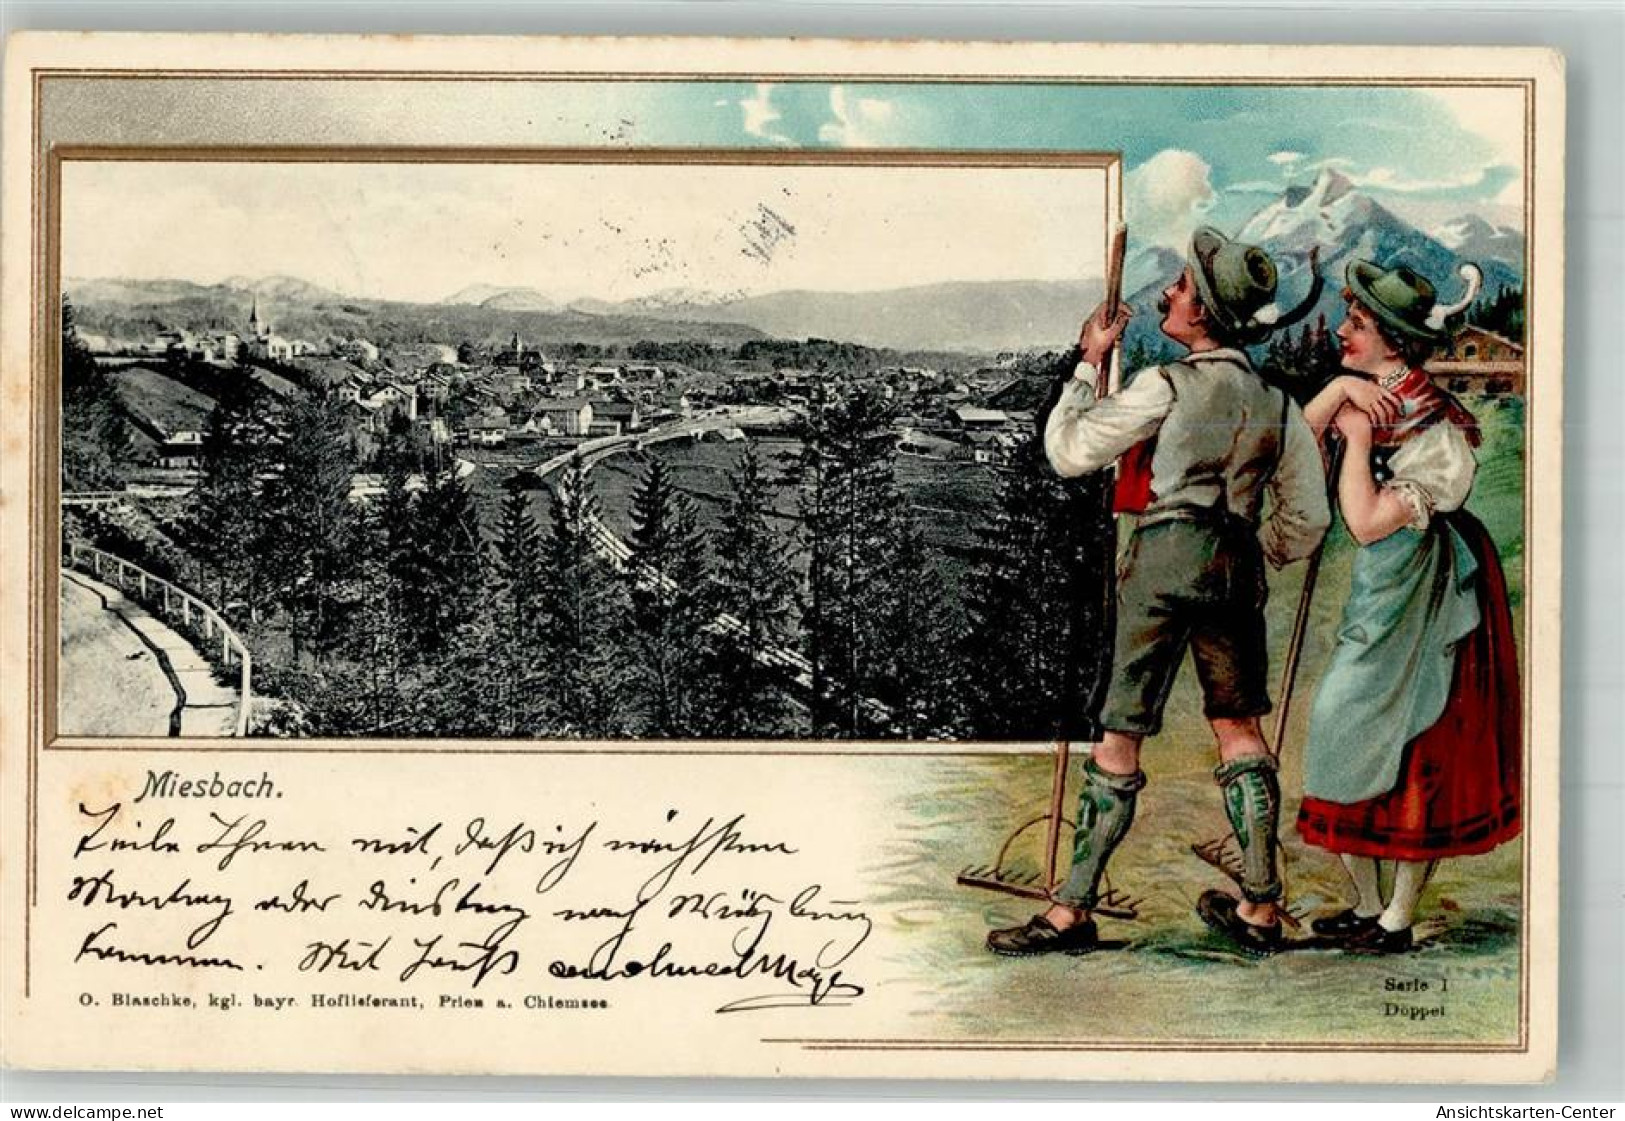 Miesbach.
Teile Ihnen mit, daß ich nächsten
Montag oder Dinstag nach Würzburg
kommen. Mit Gruß Mayer
O. Blaschke, kgl. bayr. Hoflieferant, Prien a. Chiemsee.
Serie I
Doppel
akpool.de
Ansichtskarten-Center